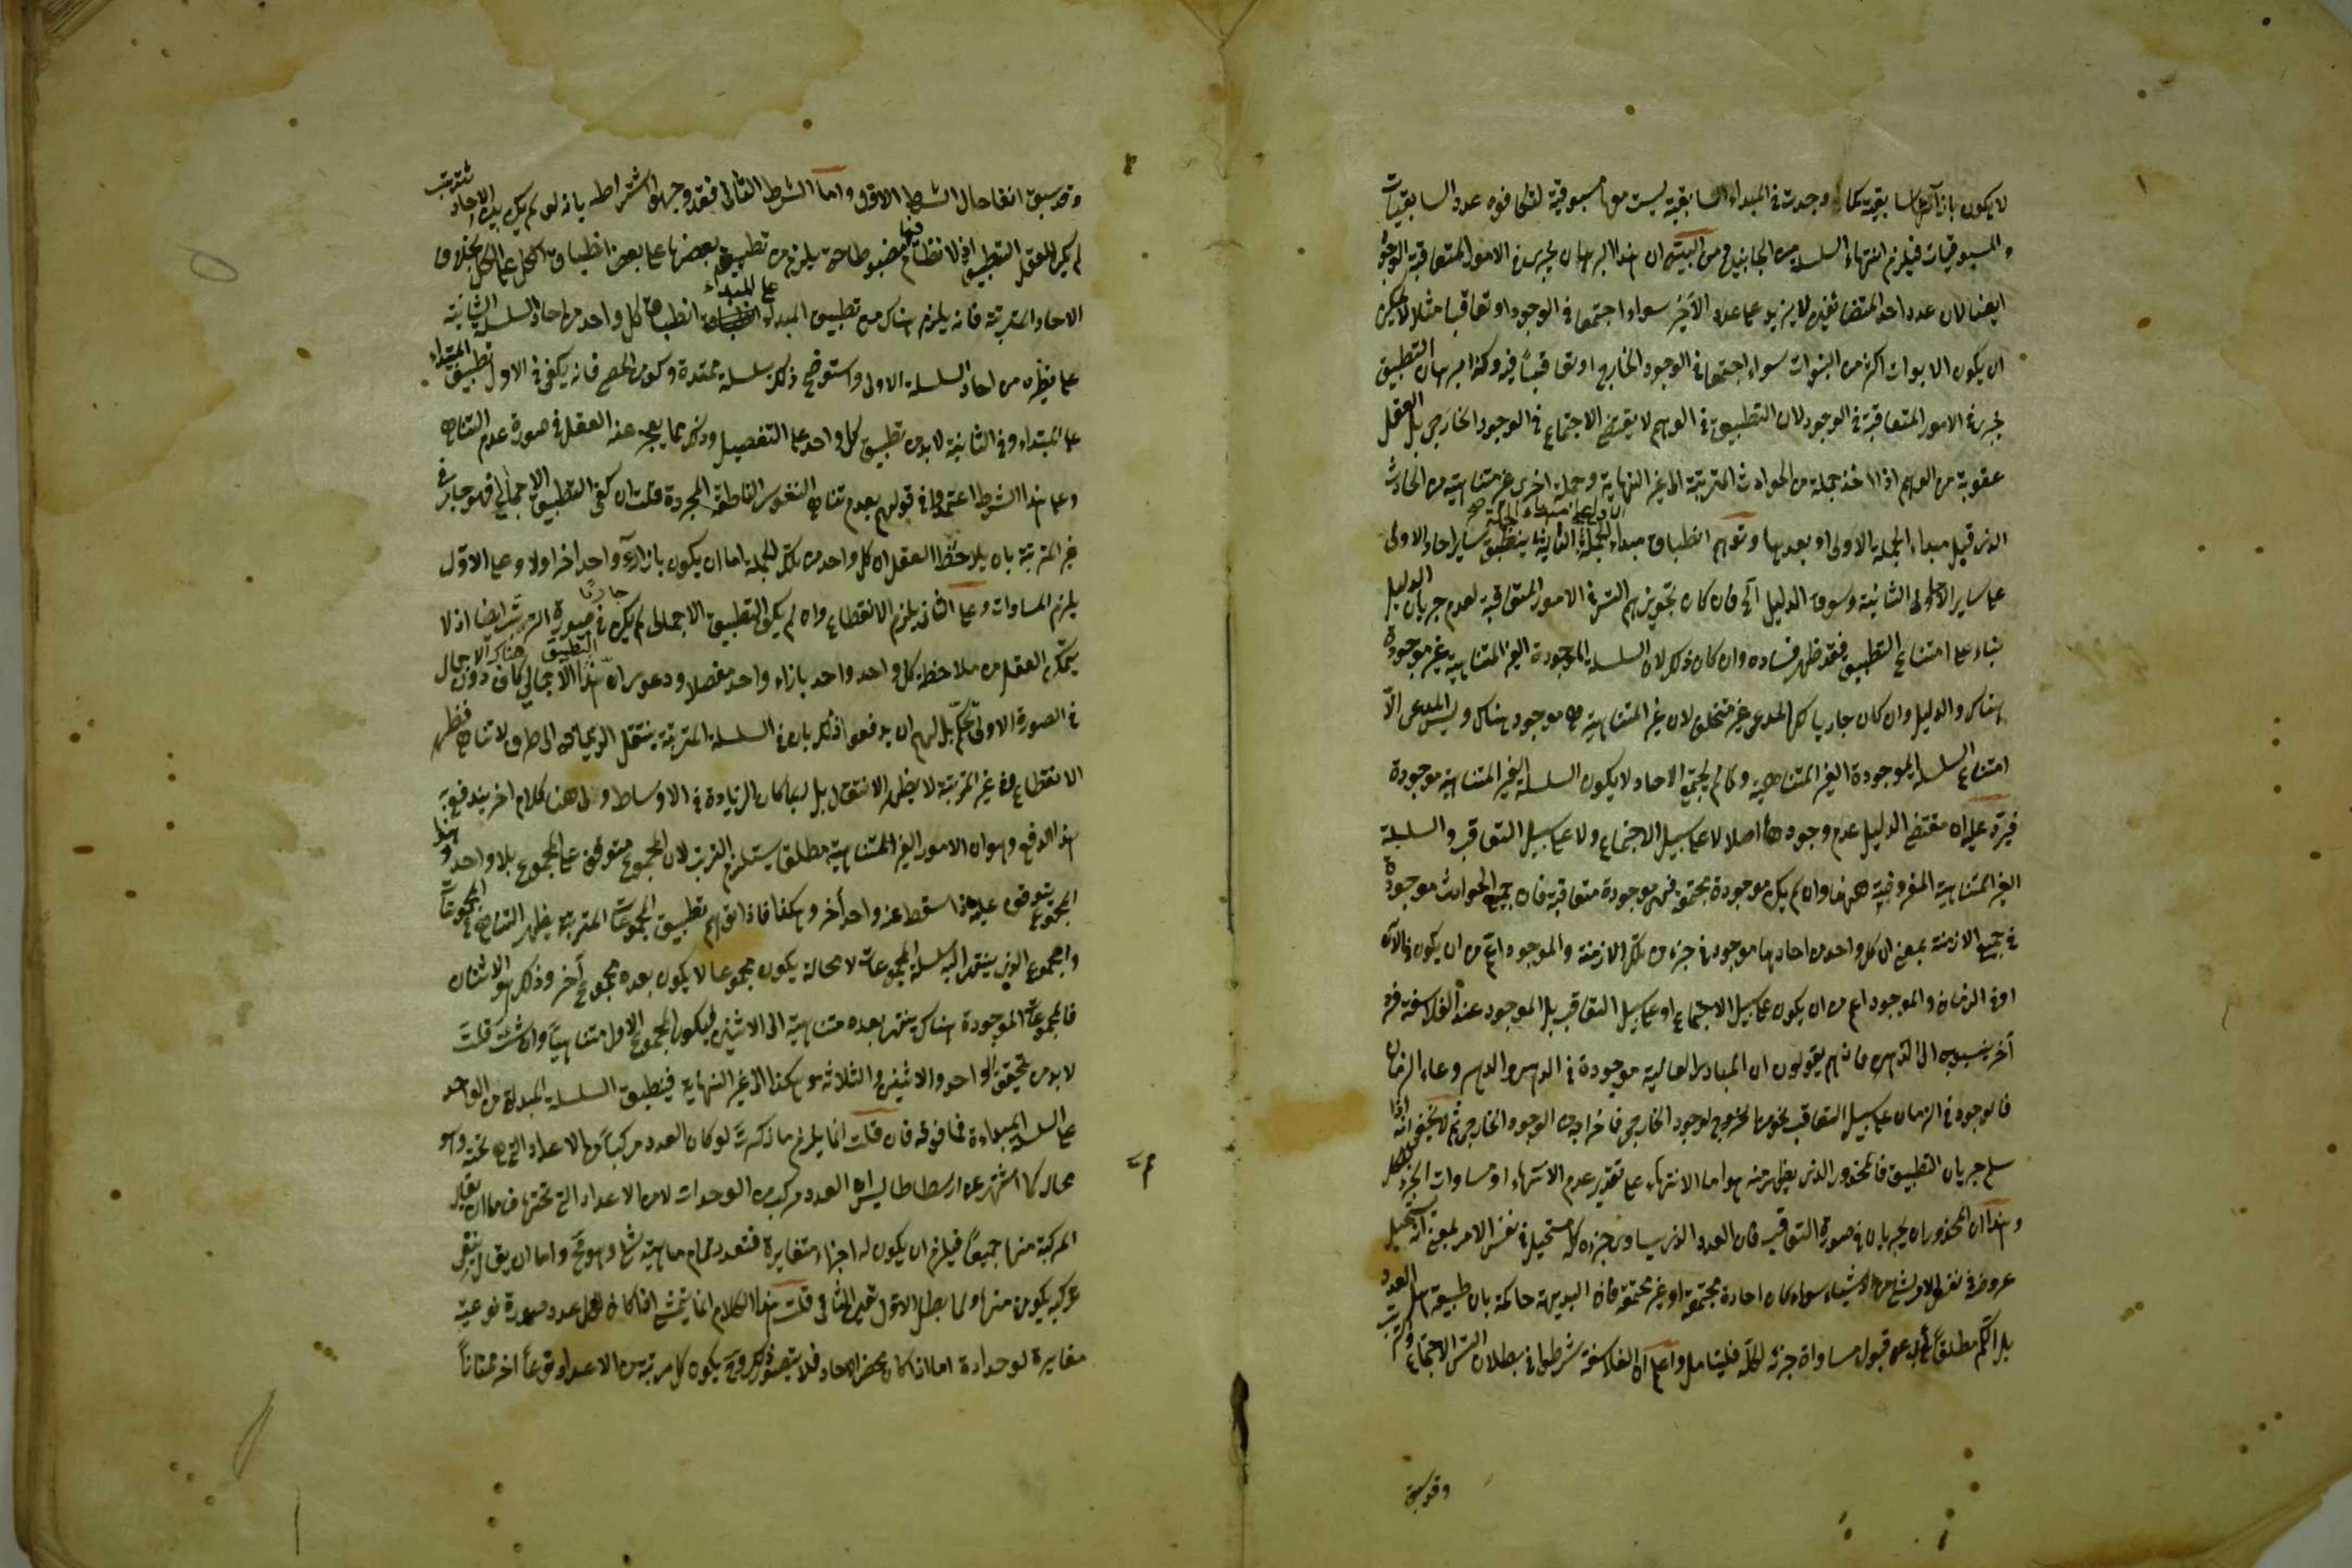 لا يكون بازائها سابقية كما وجدت في المبداء السابقية ليست معها مسبوقية لتكافوء عدد السابقيات
والمسبوقيات فيلزم انتهاء السلسلة من الجانبين من البين ان هذا البرهان يجرى في الامور المتعاقبة الوجود
ايضا لان عدد احد المتضايفين لا يزيد على عدد الآخر سواء اجتمعا في الوجود او تعاقبا مثلا لا يمكن
ان يكون الابوات اكثر من البنوات سواء اجتمعا في الوجود الخارجي او تعاقبتا فيه وكذا برهان التطبيق
يجرى في الامور المتعاقبة في الوجود لان التطبيق في الوهم لا يقتضي الاجتماع في الوجود الخارجي بل العقل
بمعونة من الوهم اذا اخذ جملة من الحوادث المترتبة الى غير النهاية وجملة اخرى غير متناهية من الحادث
الذى قبل مبداء الجملة الاولى او بعدها وتوهم انطباق مبداء الجملة الثانية ينطبق ساير احاد الاولى
على ساير الثانية وسوق الدليل الخ فان كان تجويزهم التس في الامور المتعاقبة لعدم جريان الدليل
بناء على امتناع التطبيق فقد ظهر فساده وان كان ذلك لان السلسلة الموجودة الغير المتناهية غير موجودة
هناك والدليل وان كان جاريا لكن المدعى غير متخلف لان غير المتناهية موجود هناك وليس المدعى الّا
امتناع السلسلة الموجودة الغير المتناهية وما لم يجتمع الاحاد لا يكون السلسلة الغير المتناهية موجودة
فيرد عليه ان مقتضى الدليل عدم وجودها اصلا لا على سبيل الاجتماع ولا على سبيل التعاقب والسلسلة
الغير المتناهية المفروضة ههنا وان لم يكن موجودة مجتمعة فهي موجودة متعاقبة فان جميع الحوادث موجودة
في جميع الازمنة بمعنى ان كل واحد من احادها موجود في جزء من تلك الازمنة والموجود اعم من ان يكون في الآن
او في الزمان والموجود اعم من ان يكون على سبيل الاجتماع او على سبيل التعاقب بل الموجود عند الفلاسفة فرد
آخر ينسبونه الى الدهر فانهم يقولون ان المبادى العالية موجودة في الدهر والدهر وعاء الزمان
فالوجود في الزمان على سبيل التعاقب نحو من الوجود الخارجي فاخراجه من الوجود الخارجي ثم لا يخفى انه اذا
سلم جريان التطبيق فالمحذور الذى يظهر منه هو اما الانتهاء على تقدير عدم الانتهاء او مساوات الجزء للكل
وهذان المحذوران يجريان في صورة التعاقب فان العدد الذى يساوى جزءه كله مستحيل في نفس الامر بمعنى انه يستحيل
عروضه في نفس الامر لشيء من الاشياء سواء كان احاده مجتمعة او غير مجتمعة فان البديهة حاكمة بان طبيعة العدد
بل الكم مطلقاً تأبى عن قبول مساواة جزئه لكله فليتامل واعلم ان الفلاسفة شرطوا في بطلان التس الاجتماع والترتب
وقد سبق
وقد سبق انفا حال الشرط الاول واما الشرط الثاني فقد وجهوا اشتراطه بانه لو لم يكن بين الاحاد ترتب
لم يكن للعقل التطبيق اذ لا نظام مضبوطا حتى يلزم من تطبيق بعضها على بعض انطباق الكل على الكل بخلاف
الاحاد المترتبة فانه يلزم هناك من تطبيق المبداء على المبداء انطباق كل واحد من احاد السلسلة الثانية
على نظيره من احاد السلسلة الاولى واستوضح ذلك بسلسلة ممتدة وكوم من الحصى فانه يكفى في الاول تطبيق المبتداء
على المبتداء وفي الثانية لا بد من تطبيق كل واحد على التفصيل وذلك مما يعجز عنه العقل في صورة عدم التناهي
وعلى هذا الشرط اعتمدوا في قولهم بعدم تناهي النفوس الناطقة المجردة قلت ان كفى التطبيق الاجمالي فهو جار في
غير المترتبة بان يلاحظ العقل ان كل واحد من تلك الجملة اما ان يكون بازائه واحد اخر او لا وعلى الاول
يلزم المساوات وعلى الثاني يلزم الانقطاع وان لم يكف التطبيق الاجمالي لم يكن جاريًا في صورة الترتب ايضا اذ لا
يتمكن العقل من ملاحظة كل واحد واحد بازاء واحد مفصلا ودعوى ان هذا التطبيق الاجمالي كاف دون هناك الاجمال
في الصورة الاولى تحكم بل لهم ان يدفعوا ذلك بان في السلسلة المترتبة ينتقل الزيادة الى طرف لا تناهي فيظهر
الانقطاع وفي غير المترتبة لا يظهر الانتقال بل ربما كان الزيادة في الاوساط ولى ههنا كلام اخر يندفع به
هذا الدفع وهو ان الامور الغير المتناهية مطلقا يستلزم الترتب لان المجموع متوقف على المجموع بلا واحد وهذا
المجموع يتوقف عليه اذا سقط عنه واحد آخر وهكذا فاذا توهم تطبيق المجموعات المترتبة يظهر التناهي في المجموعات
والمجموع الذى ينتهى اليه سلسلة المجموعات لا محالة يكون مجموعا لا يكون بعده مجموع آخر وذلك هو الاثنان
فالمجموعات الموجودة هناك ينتهي بعده متناهية الى الاثنين فيكون المجموع الاول متناهياً وان شئت قلت
لا بد من تحقق الواحد والاثنين والثلاثة هو هكذا الى غير النهاية فينطبق السلسلة المبداة من الواحد
على السلسلة المبداءة فما فوقه فان قلت انما يلزم ما ذكرت لو كان العدد مركباً من الاعداد التي تحته وهو
محال كما اشتهر عن ارسطاطاليس ان العدد مركب من الوحدات لا من الاعداد التي تحته فاما ان يقال
المركبة منها جميعاً فيلزم ان يكون له اجزاء متغايرة فتعدد تمام ماهية شيء وهو مح واما ان يقال
تركبه يكون منها ولما بطل الاول تعين الثاني قلت هذا الكلام انما يتمشى اذا كان لكل عدد صورة نوعية
مغايرة لوحداته اما اذا كان محض الاحاد فلا يتصور ذلك وح يكون كل مرتبة من الاعداد نوعاً اخر ممتازاً